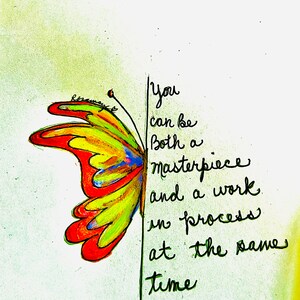 You
can be
Both a
masterpiece
and a work
in process
at the same
time